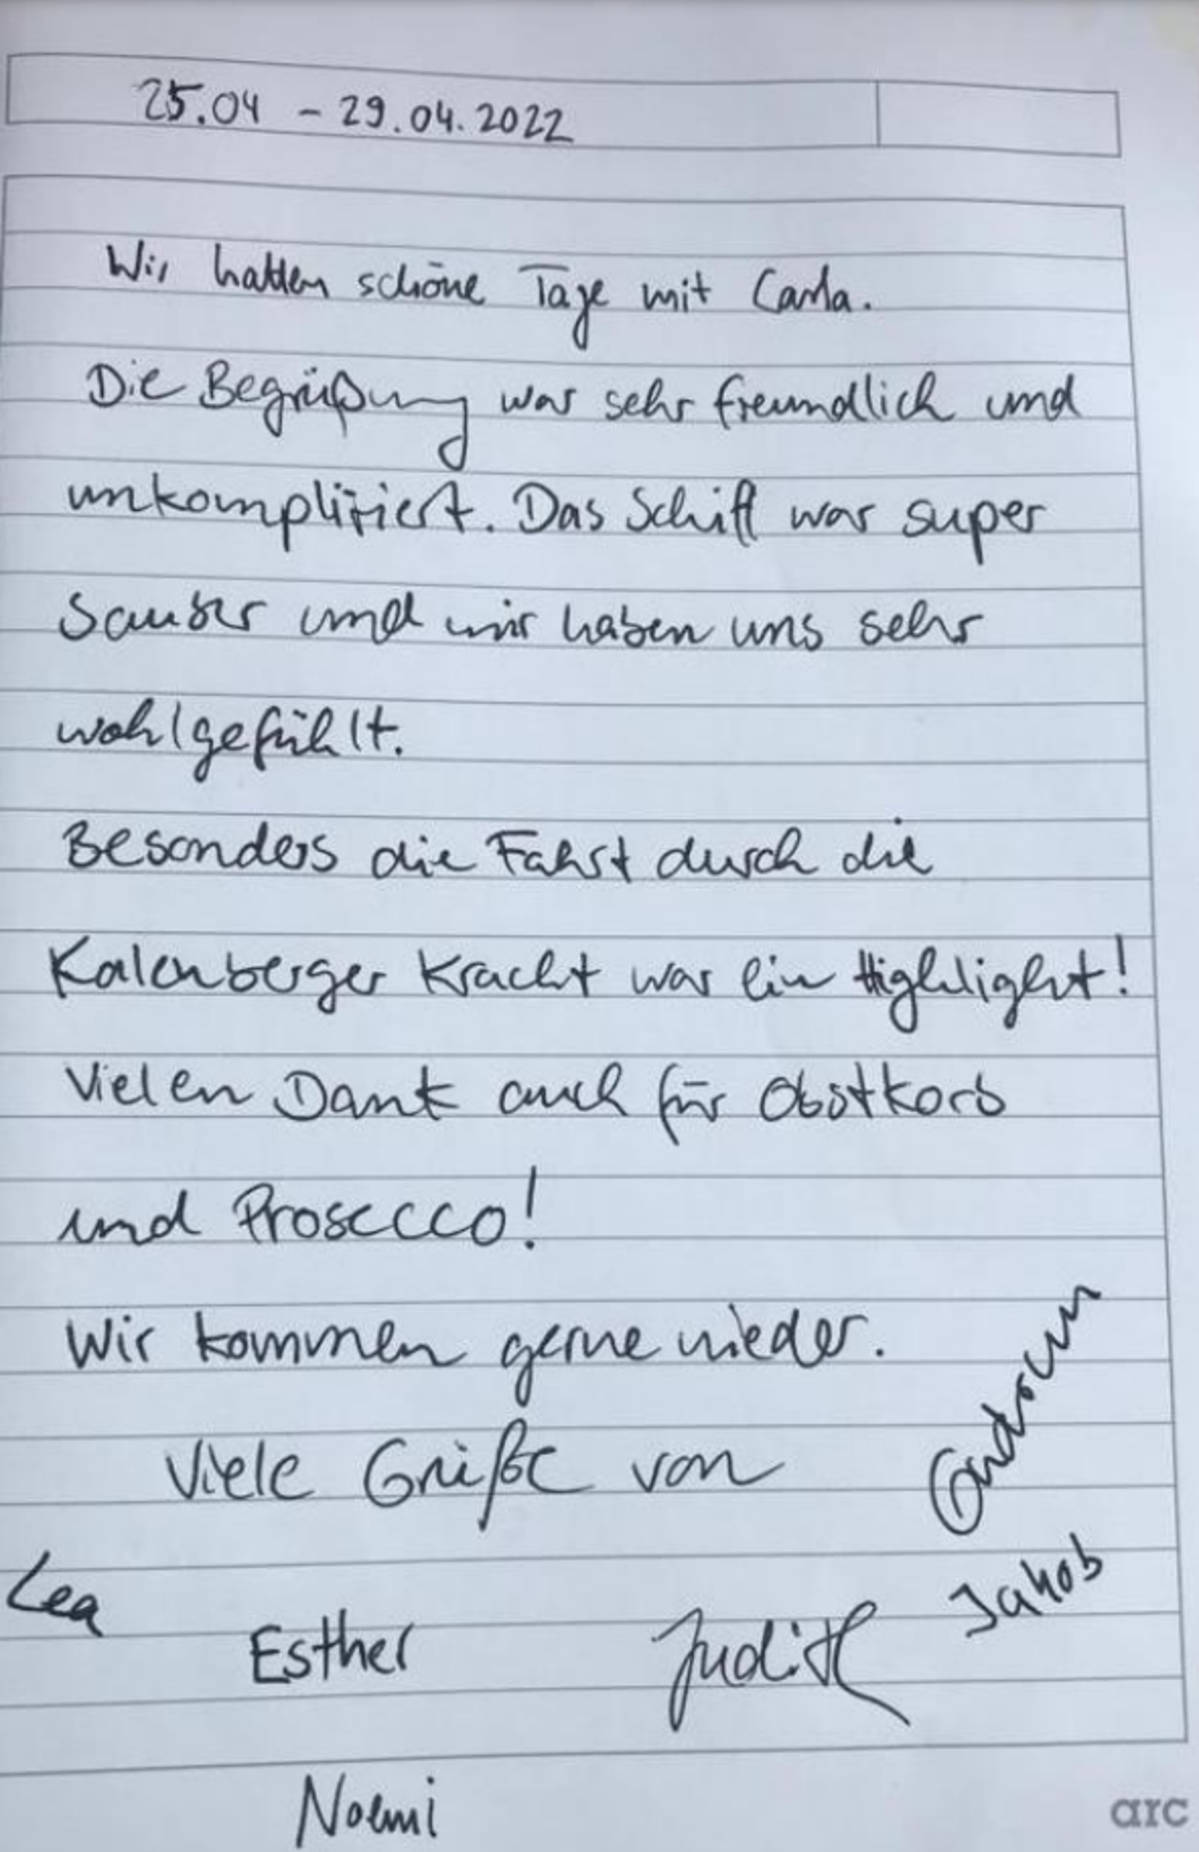 25.04 - 29.04.2022
Wir hatten schöne Tage mit Carla.
Die Begrüßung war sehr freundlich und
unkompliziert. Das Schiff war super
sauber und wir haben uns sehr
wohlgefühlt.
Besonders die Fahrt durch die
Kalenberger Kracht war ein Highlight!
Vielen Dank auch für Obstkorb
und Prosecco!
Wir kommen gerne wieder.
Viele Grüße von
Lea
Esther
Judith
Jakob
Noemi
arc